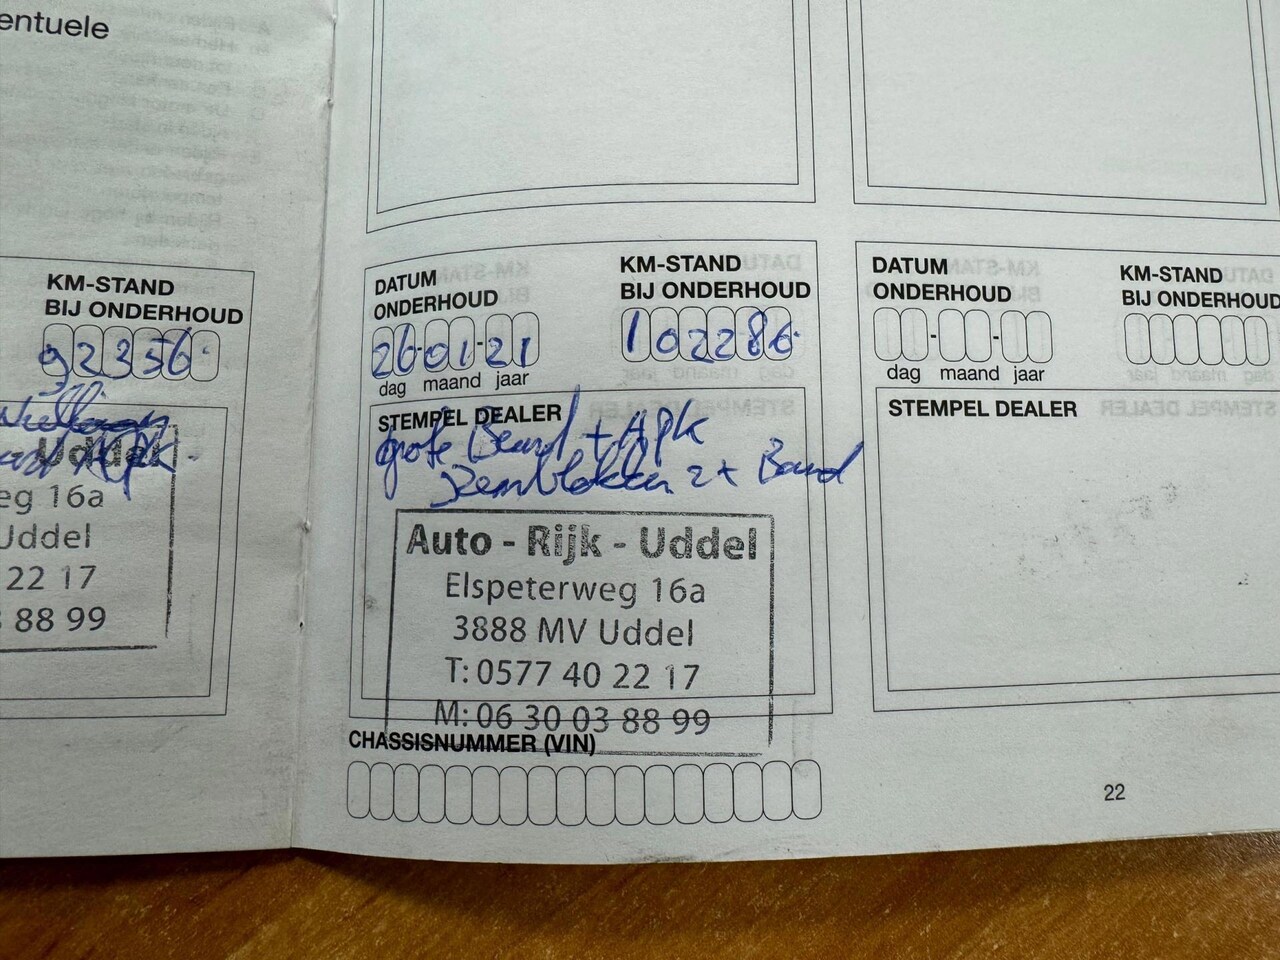 entuele
KM-STAND
BIJ ONDERHOUD
92356
Uddel
eg 16a
Uddel
22 17
88 99
DATUM
ONDERHOUD
KM-STAND
BIJ ONDERHOUD
26-01-21
102286
dag maand jaar
STEMPEL DEALER
grote Beurt + APK
Remblokken 2x Band
Auto - Rijk - Uddel
Elspeterweg 16a
3888 MV Uddel
T: 0577 40 22 17
M: 06 30 03 88 99
CHASSISNUMMER (VIN)
DATUM
ONDERHOUD
KM-STAND
BIJ ONDERHOUD
dag maand jaar
STEMPEL DEALER
22